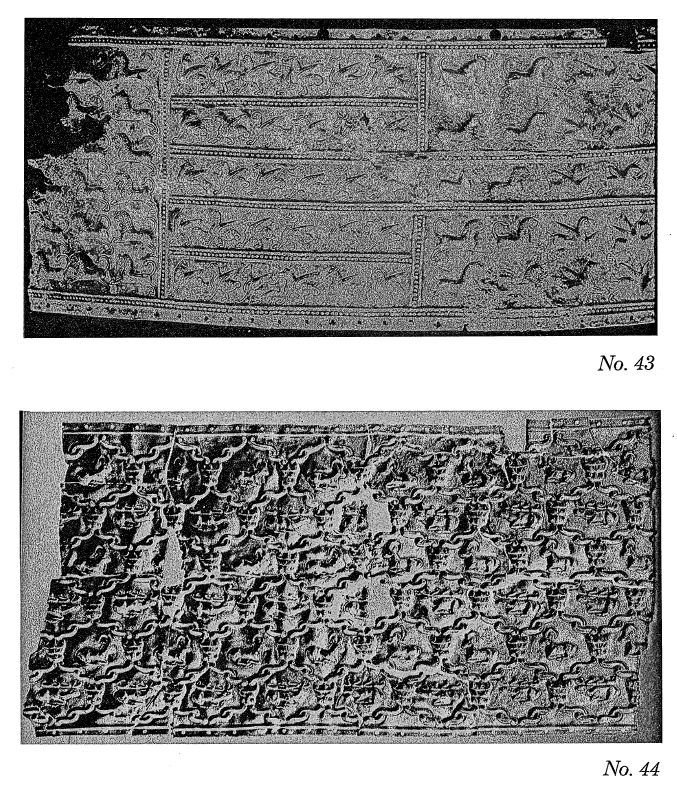 No. 43
No. 44